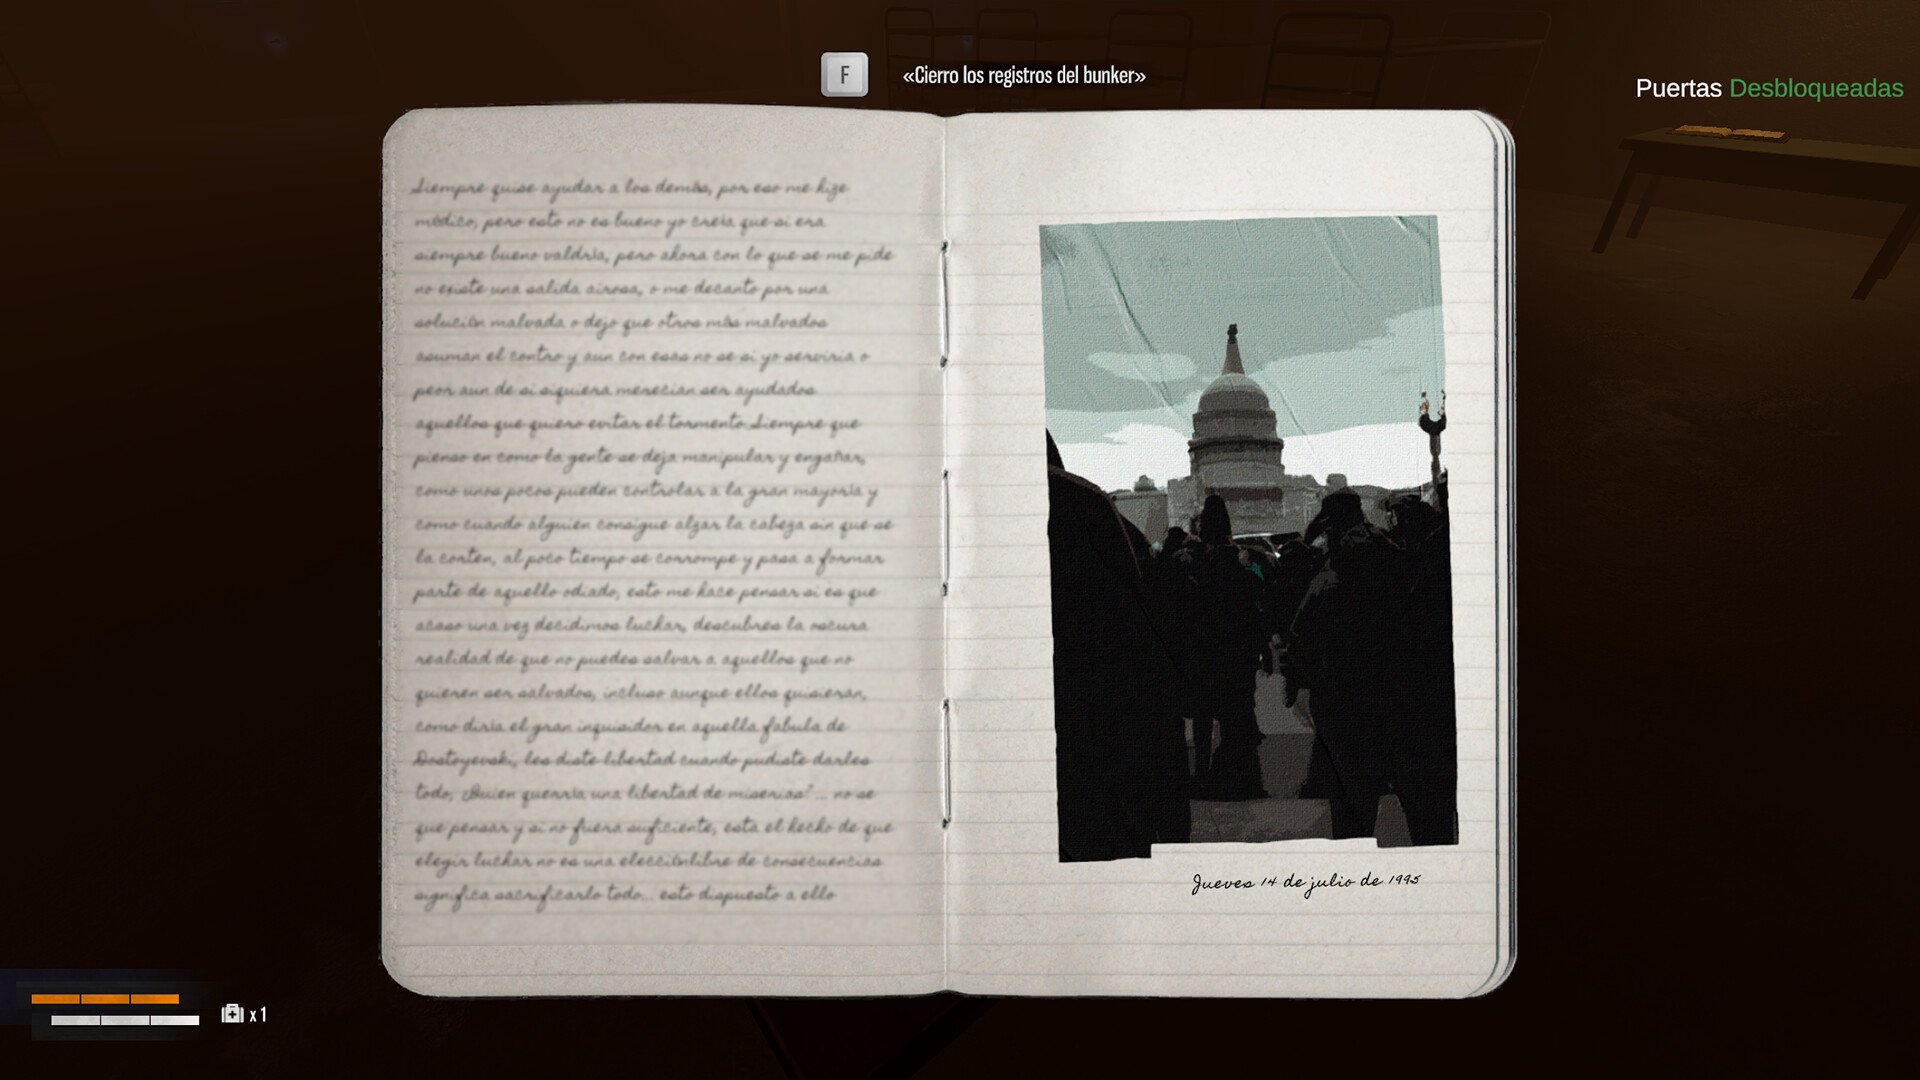 F «Cierro los registros del bunker»
Puertas Desbloqueadas
Siempre quise ayudar a los demás, por eso me hize
médico, pero esto no es bueno yo creía que si era
siempre bueno valdría, pero ahora con lo que se me pide
no existe una salida airosa, o me decanto por una
solución malvada o dejo que otros más malvados
asuman el contro y aun con esas no se si yo serviria o
peor aun de si siquiera merecian ser ayudados
aquellos que quiero evitar el tormento.Siempre que
pienso en como la gente se deja manipular y engañar,
como unos pocos pueden controlar a la gran mayoría y
como cuando alguien consigue alzar la cabeza sin que se
la corten, al poco tiempo se corrompe y pasa a formar
parte de aquello odiado, esto me hace pensar si es que
acaso una vez decidimos luchar, descubres la oscura
realidad de que no puedes salvar a aquellos que no
quieren ser salvados, incluso aunque ellos quisieran,
como diría el gran inquisidor en aquella fabula de
Dostoyevski, les diste libertad cuando pudiste darles
todo, ¿Quien querría una libertad de miserias? ... no se
que pensar y si no fuera suficiente, esta el hecho de que
elegir luchar no es una elecciónlibre de consecuencias
significa sacrificarlo todo... esto dispuesto a ello
Jueves 14 de julio de 1995
x1